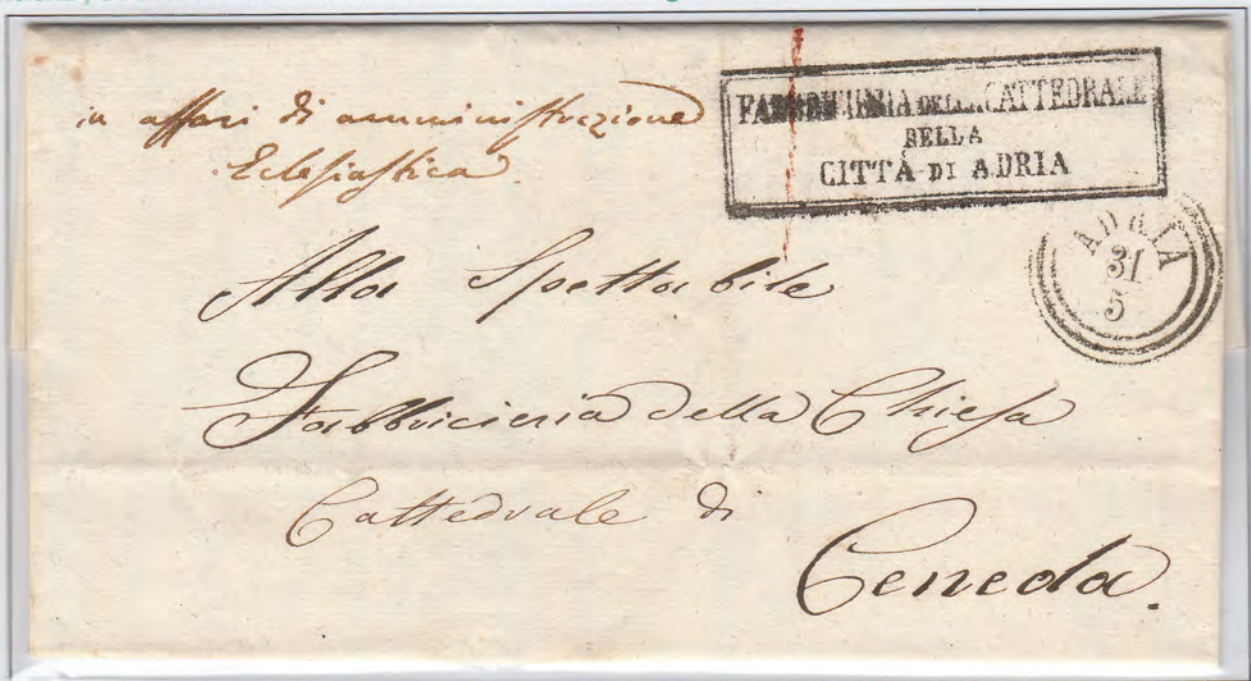 in affari di amministrazione
Eclesiastica
FABBRICIERIA DELLA CATTEDRALE
DELLA
CITTÀ DI ADRIA
ADRIA
31
5
Alla Spettabile
Fabbricieria della Chiesa
Cattedrale di
Ceneda.